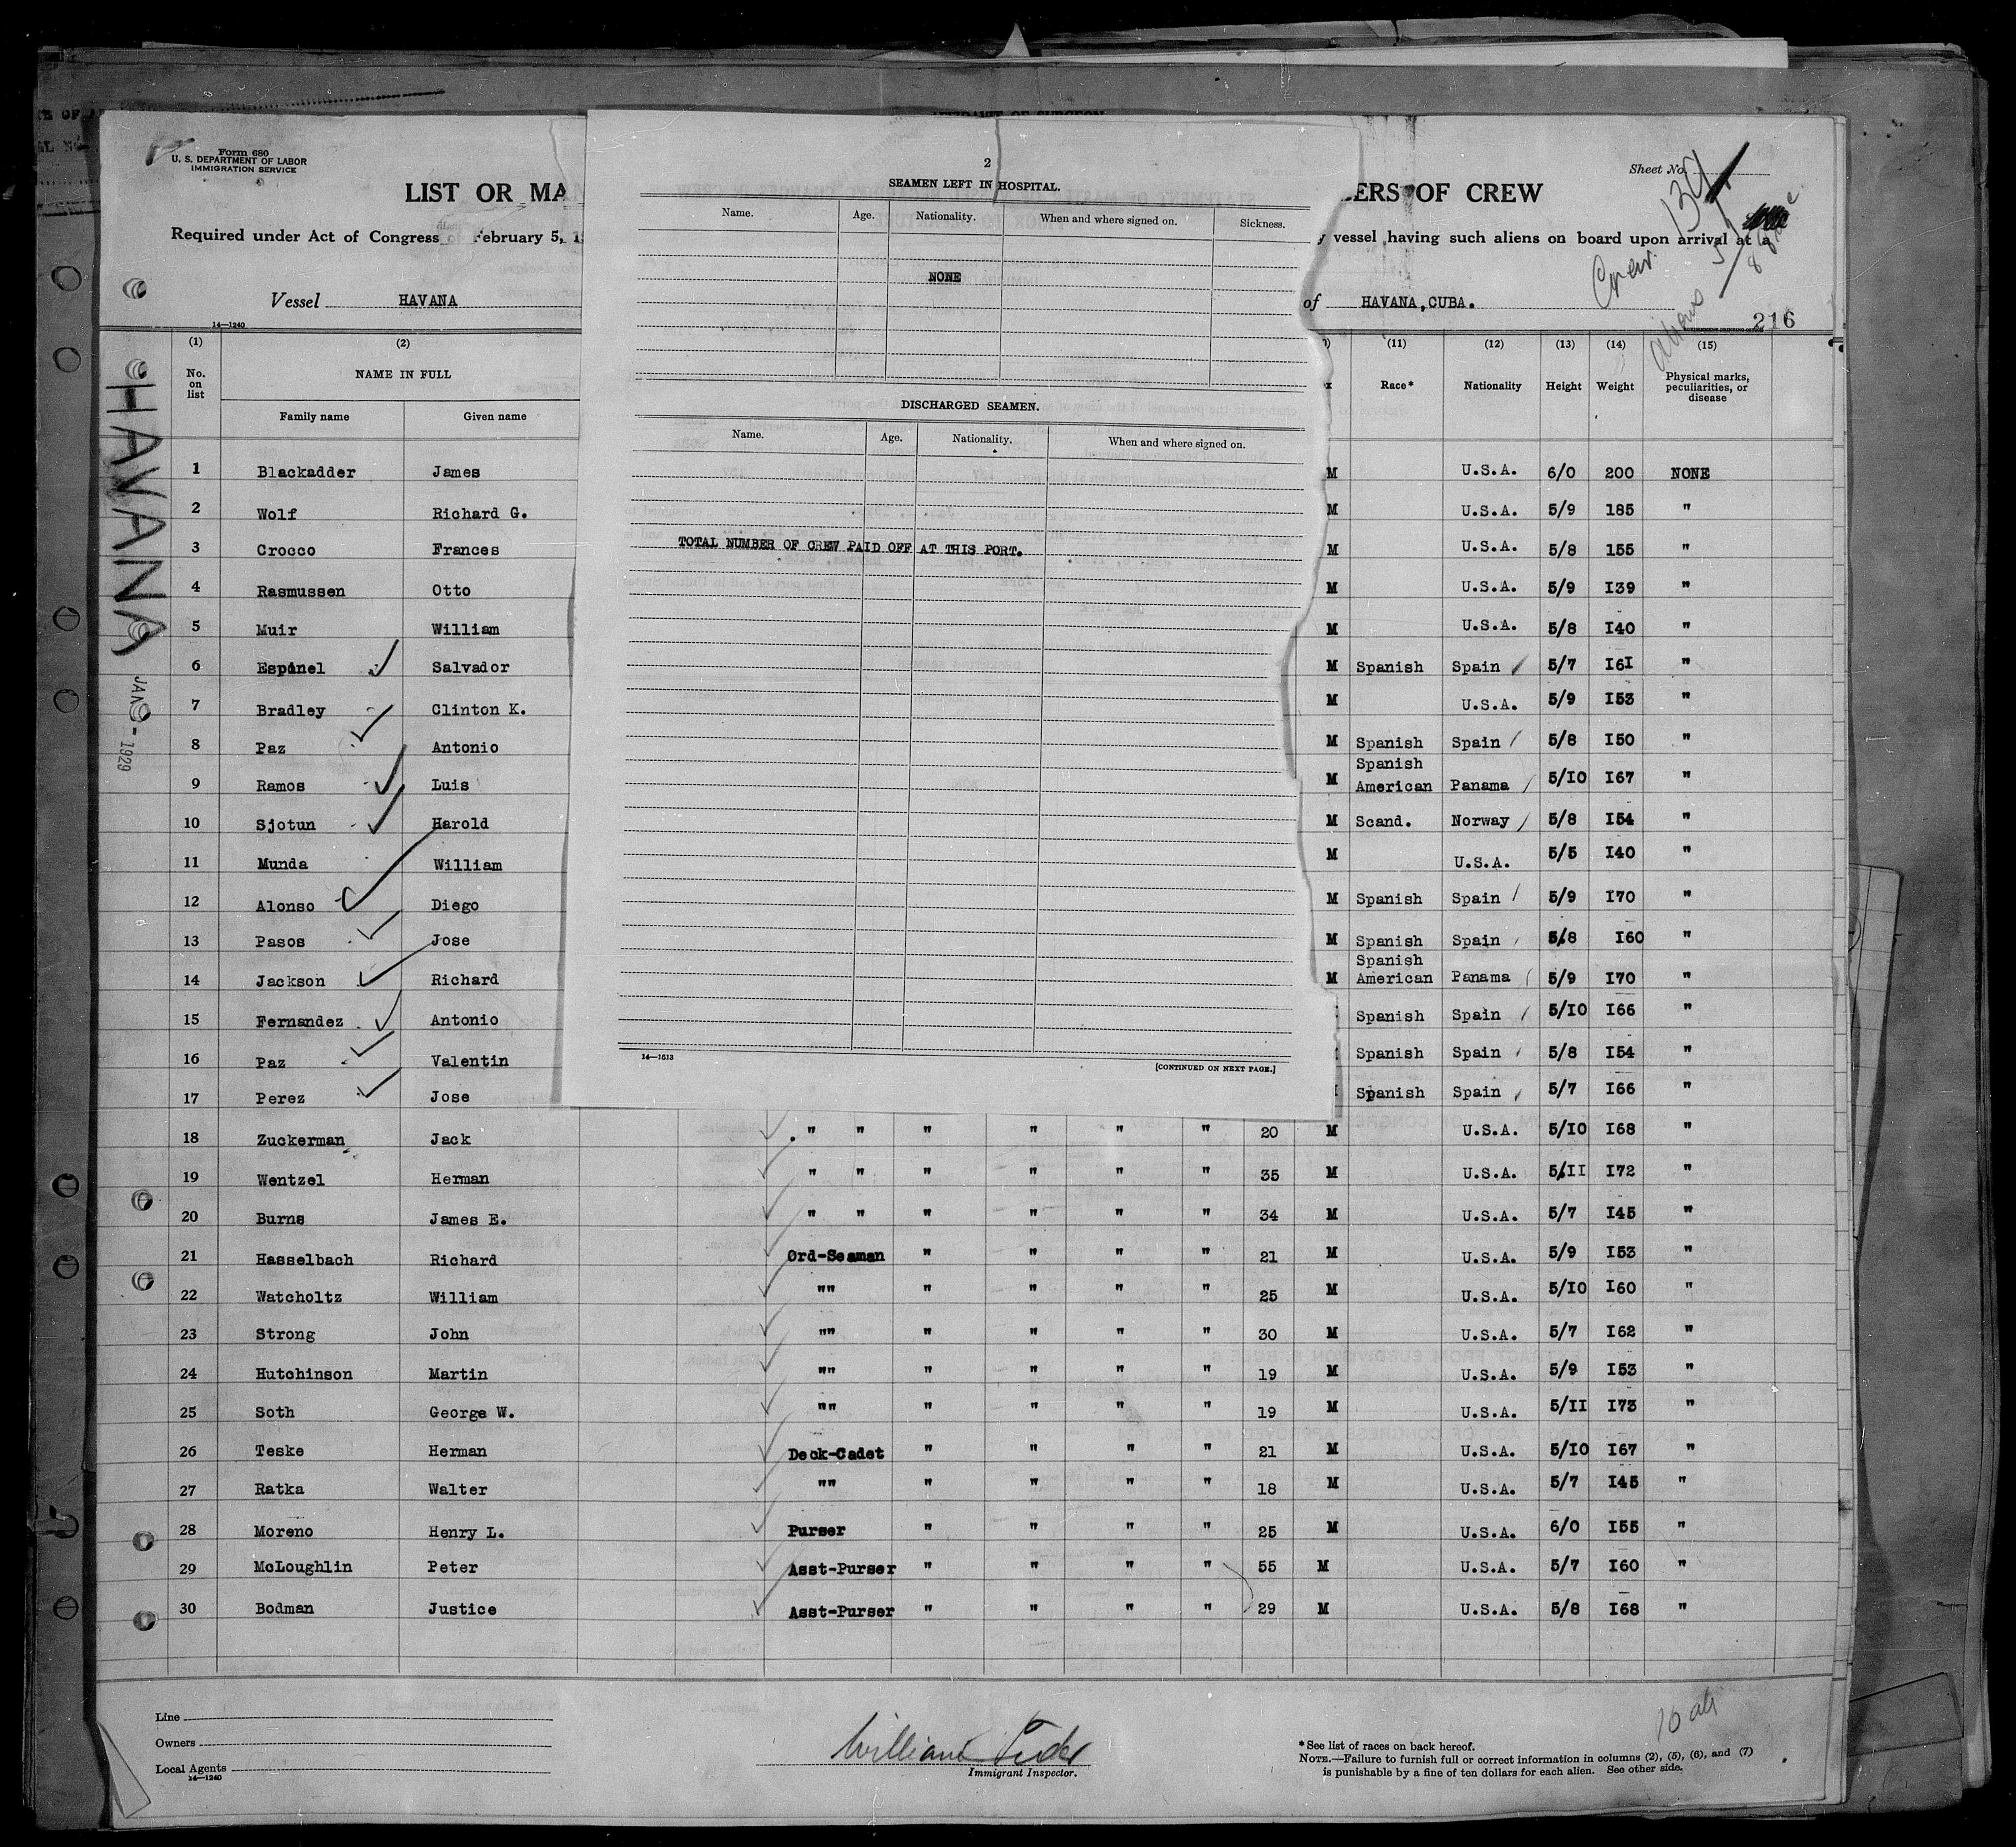 Form 680
U. S. DEPARTMENT OF LABOR
IMMIGRATION SERVICE
LIST OR MA
Required under Act of Congress February 5, 1
Vessel HAVANA
14—1240
ERS OF CREW
Sheet No.
y vessel having such aliens on board upon arrival at a
of HAVANA, CUBA.
Crew 134
aliens
216
HAVANA
JAN 9 - 1929
2
SEAMEN LEFT IN HOSPITAL.
Name. Age. Nationality. When and where signed on. Sickness.
NONE
DISCHARGED SEAMEN.
Name. Age. Nationality. When and where signed on.
TOTAL NUMBER OF CREW PAID OFF AT THIS PORT.
14—1613
[CONTINUED ON NEXT PAGE.]
(1) (2) (11) (12) (13) (14) (15)
No. on list NAME IN FULL Race* Nationality Height Weight Physical marks, peculiarities, or disease
Family name Given name
1 Blackadder James M U.S.A. 6/0 200 NONE
2 Wolf Richard G. M U.S.A. 5/9 185 "
3 Crocco Frances M U.S.A. 5/8 155 "
4 Rasmussen Otto M U.S.A. 5/9 I39 "
5 Muir William M U.S.A. 5/8 I40 "
6 Espinel Salvador M Spanish Spain 5/7 I6I "
7 Bradley Clinton K. M U.S.A. 5/9 I53 "
8 Paz Antonio M Spanish Spain 5/8 I50 "
9 Ramos Luis M Spanish American Panama 5/I0 I67 "
10 Sjotun Harold M Scand. Norway 5/8 I54 "
11 Munda William M U.S.A. 5/5 I40 "
12 Alonso Diego M Spanish Spain 5/9 I70 "
13 Pasos Jose M Spanish Spain 5/8 I60 "
14 Jackson Richard M Spanish American Panama 5/9 I70 "
15 Fernandez Antonio Spanish Spain 5/I0 I66 "
16 Paz Valentin Spanish Spain 5/8 I54 "
17 Perez Jose Spanish Spain 5/7 I66 "
18 Zuckerman Jack " " " " " " 20 M U.S.A. 5/I0 I68 "
19 Wentzel Herman " " " " " " 35 M U.S.A. 5/II I72 "
20 Burns James E. " " " " " " 34 M U.S.A. 5/7 I45 "
21 Hasselbach Richard Ord-Seaman " " " " 21 M U.S.A. 5/9 I53 "
22 Watcholtz William "" " " " " 25 M U.S.A. 5/I0 I60 "
23 Strong John "" " " " " 30 M U.S.A. 5/7 I62 "
24 Hutchinson Martin "" " " " " 19 M U.S.A. 5/9 I53 "
25 Soth George W. "" " " " " 19 M U.S.A. 5/II I73 "
26 Teske Herman Deck-Cadet " " " " 21 M U.S.A. 5/I0 I67 "
27 Ratka Walter "" " " " " 18 M U.S.A. 5/7 I45 "
28 Moreno Henry L. Purser " " " " 25 M U.S.A. 6/0 I55 "
29 McLoughlin Peter Asst-Purser " " " " 55 M U.S.A. 5/7 I60 "
30 Bodman Justice Asst-Purser " " " " 29 M U.S.A. 5/8 I68 "
Line
Owners
Local Agents
14—1240
William
Immigrant Inspector.
* See list of races on back hereof.
NOTE.—Failure to furnish full or correct information in columns (2), (5), (6), and (7)
is punishable by a fine of ten dollars for each alien. See other side.